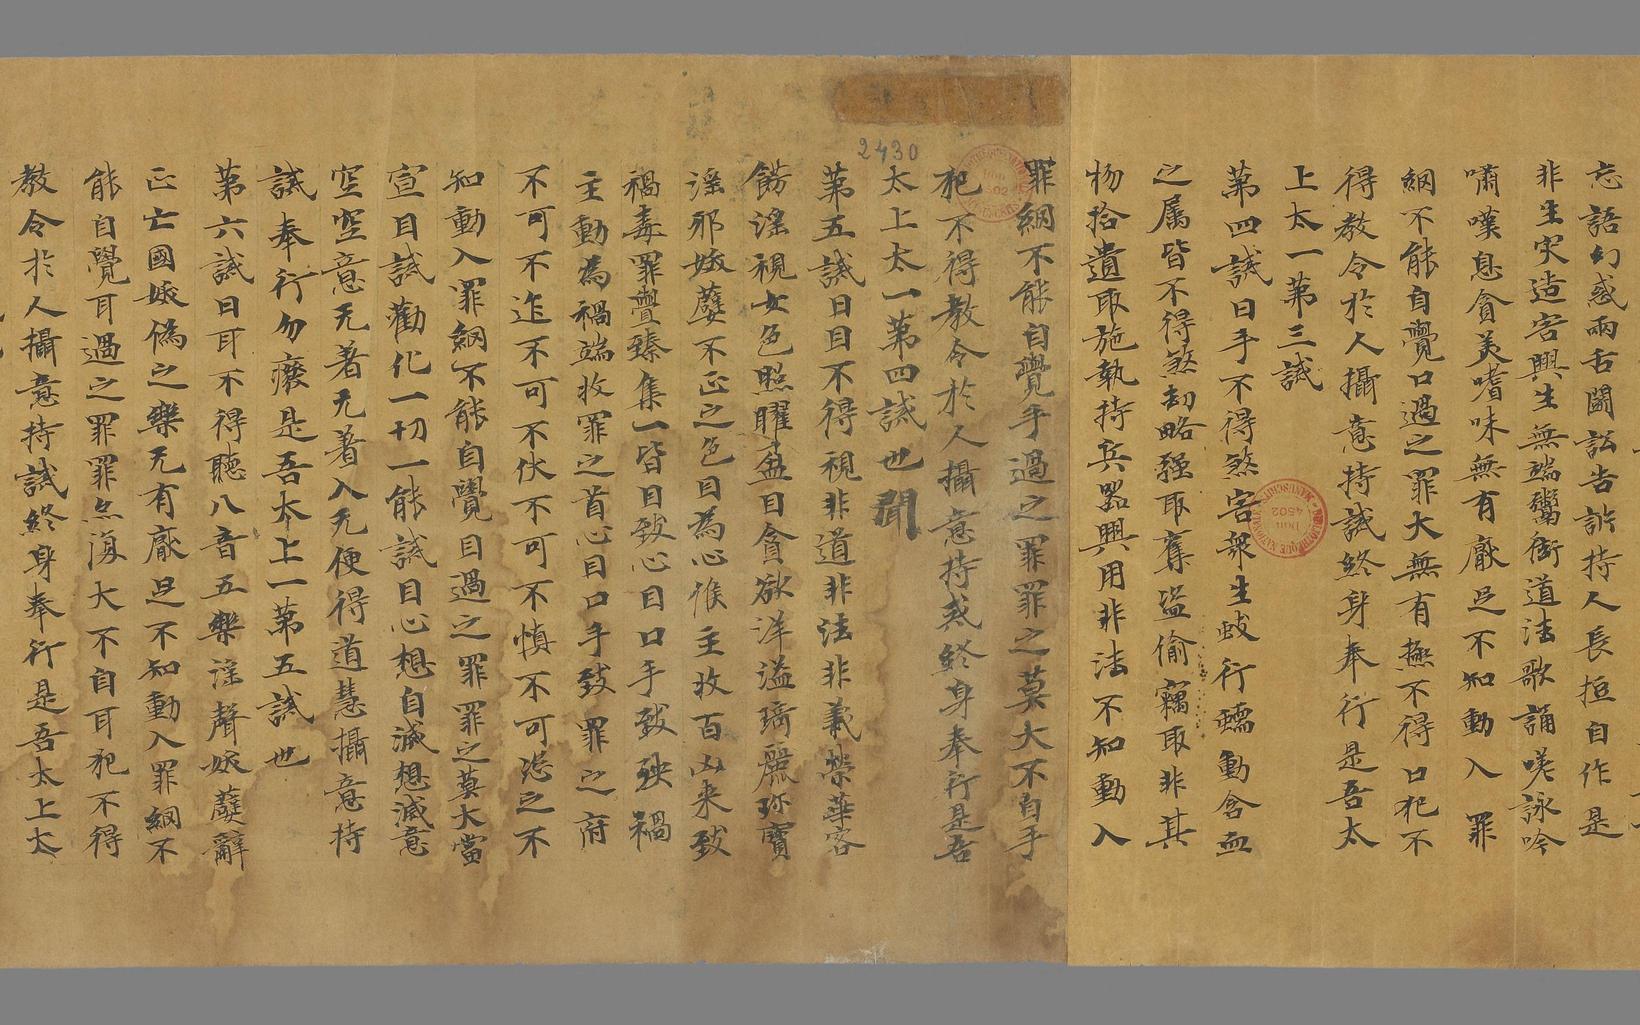 忘語幻惑兩舌鬪訟告訴持人長短自作是
非生灾造害興生無端鬻衒道法歌誦嘆詠吟
嘯嘆息貪美嗜味無有厭足不知動入罪
網不能自覺口過之罪大無有極不得口犯不
得教令於人攝意持誡終身奉行是吾太
上太一第三誡
第四誡曰手不得煞害衆生蚑行蠕動含血
之属皆不得煞劫略強取奪盜偷竊取非其
物拾遺取施執持兵器興用非法不知動入
罪網不能自覺手過之罪罪之莫大不自手
犯不得教令於人攝意持戒終身奉行是吾
太上太一第四誡也 聞
第五誡曰目不得視非道非法非義榮華容
餝淫視女色照曜盈目貪欲洋溢琦麗珎寶
淫邪妷孽不正之色目為心候主收百凶来致
禍毒罪舋臻集一皆目致心目口手致殃禍
主動為禍端收罪之首心目口手致罪之府
不可不迮不可不伏不可不慎不可恣之不
知動入罪網不能自覺目過之罪罪之莫大當
宣目誡勸化一切一能誡目心想自滅想滅意
空空意无著无著入无便得道慧攝意持
誡奉行勿癈是吾太上一第五誡也
第六誡曰耳不得聽八音五樂淫聲妷孽辭
正亡國妷偽之樂无有厭足不知動入罪網不
能自覺耳過之罪罪点海大不自耳犯不得
教令於人攝意持誡終身奉行是吾太上太
2430